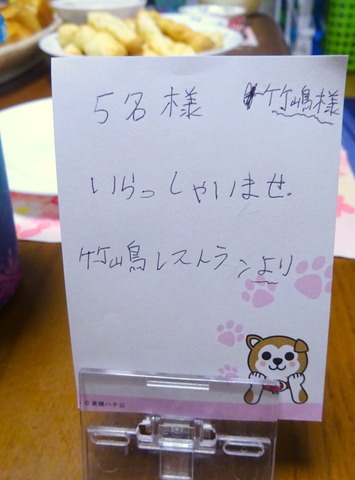 5名様 竹嶋様
いらっしゃいませ。
竹嶋レストランより
© 東急ハチ公